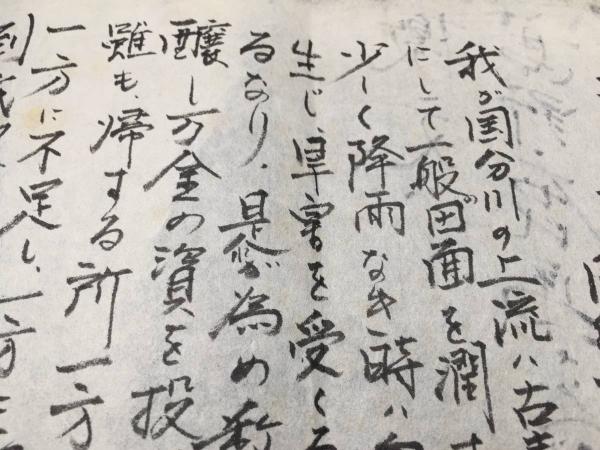 我が国分川の上流ハ古
にして一般田面を潤す
少しく降雨なき時ハ
生じ、旱害を受くる
るなり、是が為め
醸し万金の資を投
雖も、帰する所一方
一方に不足し、一方